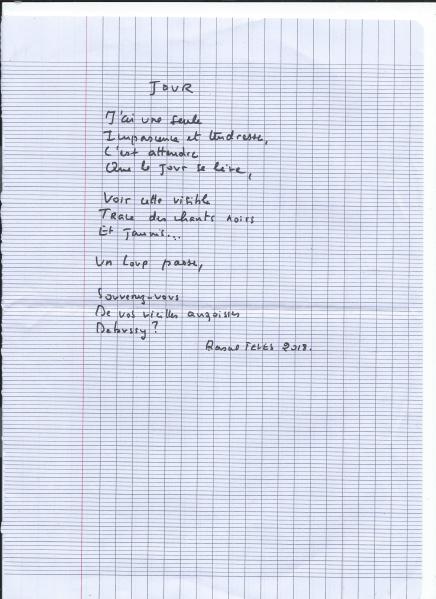 JOUR
J'ai une seule
Impatience et tendresse,
C'est attendre
Que le jour se lève,
Voir cette visible
Trace des chants noirs
Et jaunis...
Un loup passe,
Souvenez-vous
De vos vieilles angoisses
Debussy?
2018.